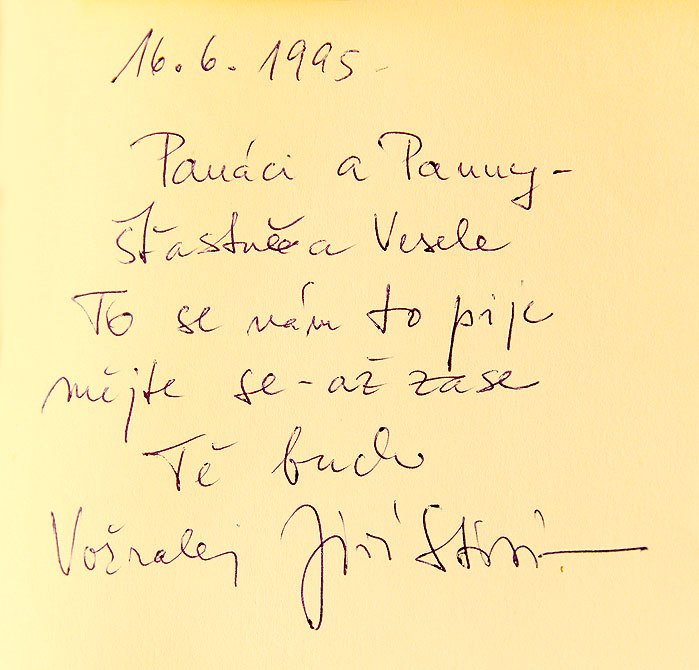 16. 6. 1995
Panáci a Panny -
Šťastně a Vesele
To se nám to pije
mějte se - až zase
Tě buch
Vožralej Jiří